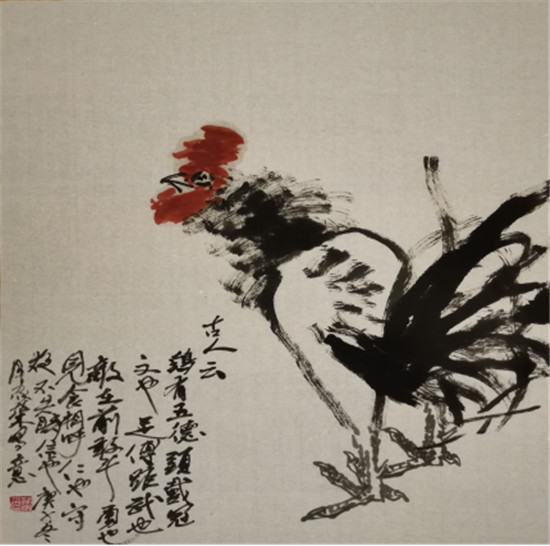 古人云
鷄有五德頭戴冠
文也足傅距武也
敵在前敢斗勇也
見食相呼仁也守
夜不失時信也庚子冬
月